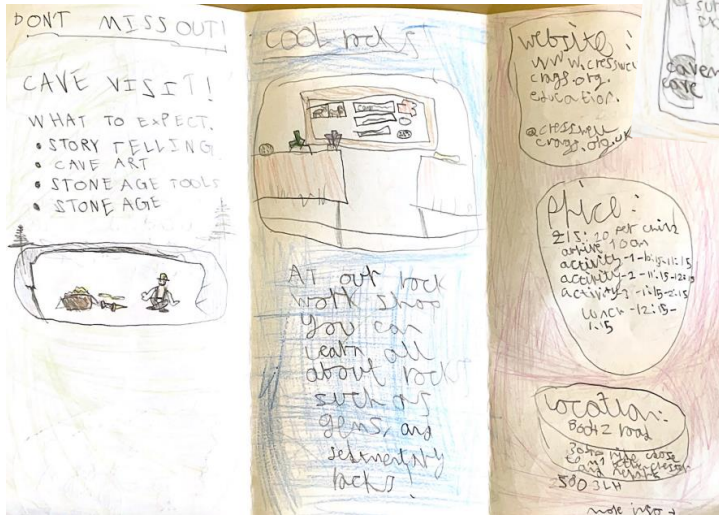 DONT MISS OUT!
CAVE VISIT!
WHAT TO EXPECT.
• STORY TELLING
• CAVE ART
• STONE AGE TOOLS
• STONE AGE
COOL rocks
At our rock
work shop
you can
learn all
about rocks
such as
gems, and
rocks!
website:
www.cresswel
crags.org.
education.
@cresswell
crags.org.uk
Price:
£15:20 per child
arrive 10am
activity-1-10:15-11:15
activity-2-11:15-12:15
activity-3-1:15-2:15
Lunch-12:15-
1:15
location:
and
S80 3LH
more info
cave